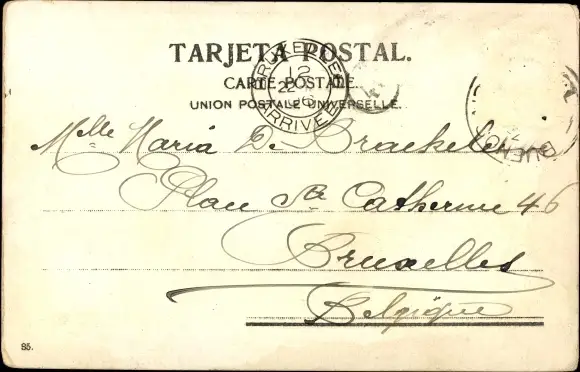 TARJETA POSTAL.
CARTE POSTALE
UNION POSTALE UNIVERSELLE.
BRUXELLES
12
22
6
ARRIVEE
BUEN
Melle Maria D. Braekeleer
Place Ste Catherine 46
Bruxelles
Belgique
35.